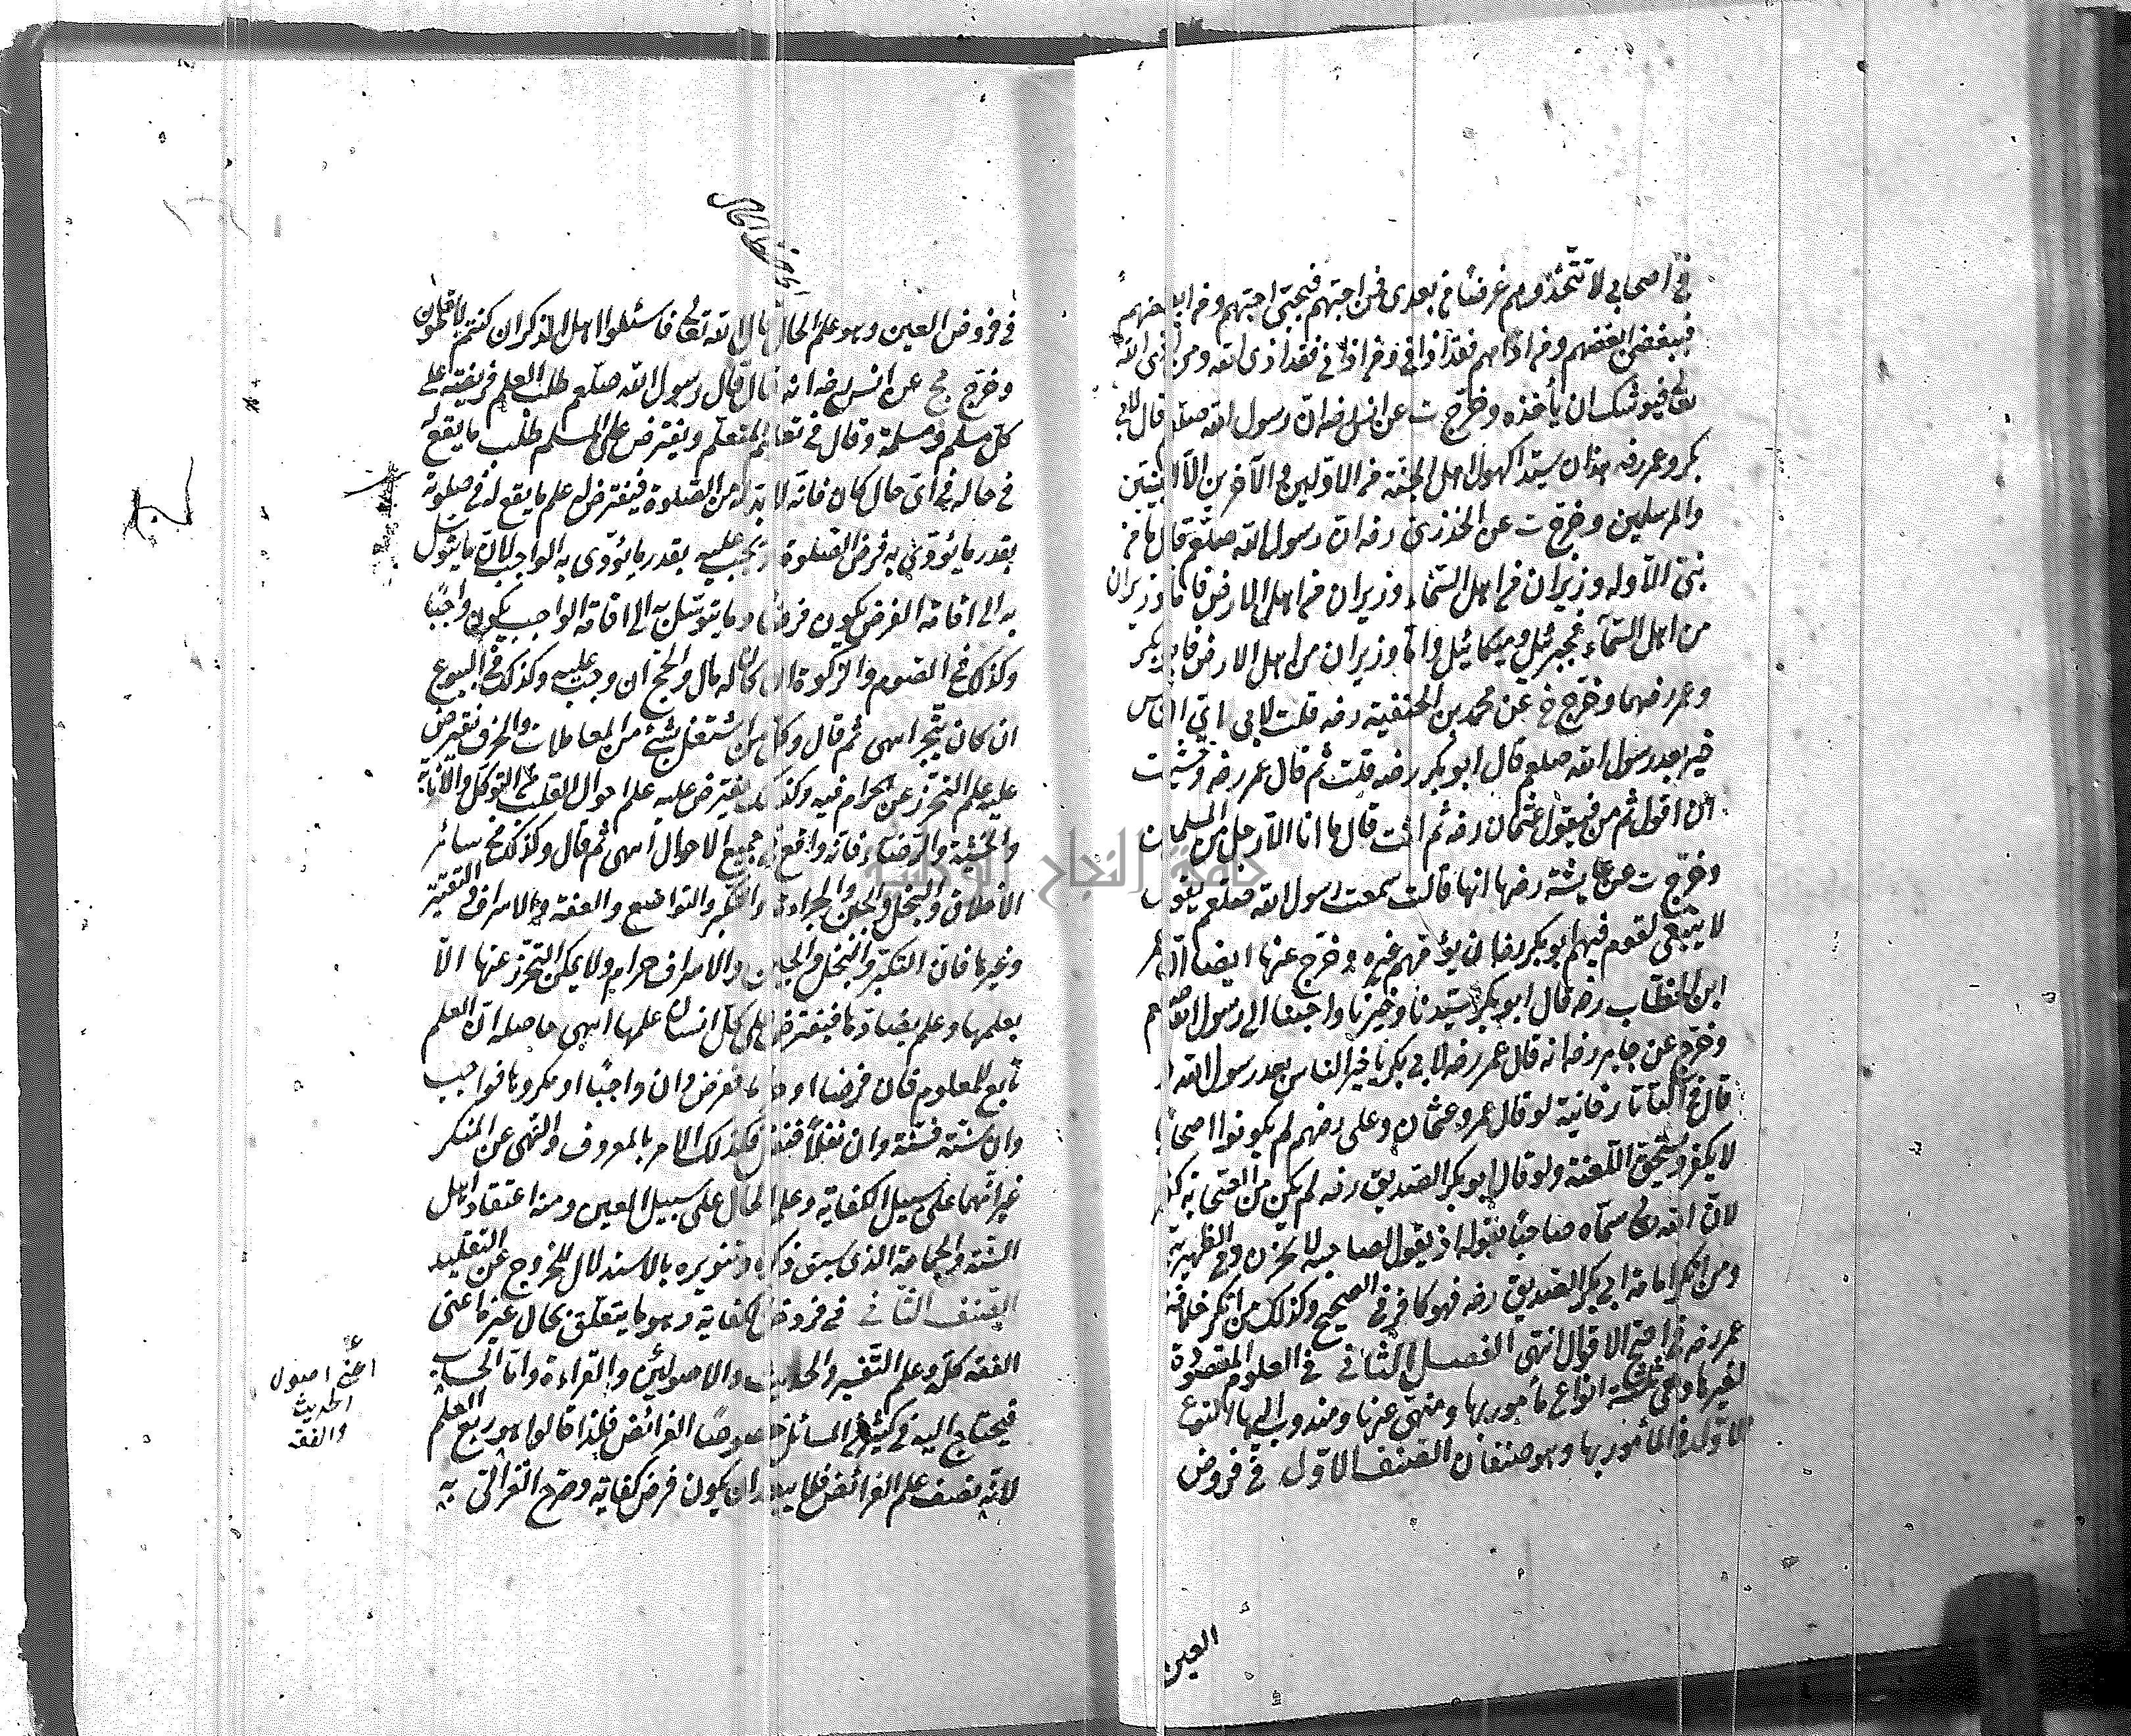 في اصحابي لا تتخذوهم غرضا في بعدي فمن احبهم فبحبي احبهم ومن ابغضهم
فببغضي ابغضهم ومن اذاهم فقد اذاني ومن اذاني فقد اذى الله ومن اذى الله
تعالى فيوشك ان يأخذه وخرّج ت عن انس رضه ان رسول الله صلعم قال لابي
بكر وعمر رضه هذان سيدا كهول اهل الجنة من الاولين والآخرين الا النبيين
والمرسلين وخرّج ت عن الخذري رضه ان رسول الله صلعم قال ما من
نبي الا وله وزيران من اهل السماء وزيران من اهل الارض فاما وزيران
من اهل السماء فجبرئيل وميكائيل واما وزيران من اهل الارض فابو بكر
وعمر رضهما وخرّج خ عن محمد بن الحنفية رضه قلت لابي اي الناس
خير بعد رسول الله صلعم قال ابو بكر رضه قلت ثم قال عمر رضه وخشيت
ان اقول ثم من فيقول عثمان رضه ثم انت قال ما انا الا رجل من المسلمين
وخرّج ت عن عايشة رضها انها قالت سمعت رسول الله صلعم يقول
لا ينبغي لقوم فيهم ابو بكر رضا ن يؤمهم غيره وخرّج عنها ايضا ان عمر
ابن الخطاب رضه قال ابو بكر سيدنا وخيرنا واحبنا الى رسول الله صلعم
وخرّج عن جابر رضه انه قال عمر رضه لابي بكر يا خير الناس بعد رسول الله
قال في التاتارخانية لو قال عمر وعثمان وعلى رضهم لم يكونوا اصحابا
لا يكفر ويستحق اللعنة ولو قال ابو بكر الصديق رضه لم يكن من الصحابة كفر
لان الله تعالى سماه صاحبا بقوله اذ يقول لصاحبه لا تحزن وفي الظهيرية
ومن انكر امامة ابي بكر الصديق رضه فهو كافر في الصحيح وكذلك من انكر خلافة
عمر رضه في اصح الاقوال انتهى الفصل الثاني في العلوم المقصودة
لغيرها وهي ثلثة انواع مأمور بها ومنهى عنها ومندوب اليها النوع
الاول في المأمور بها وهو صنفان الصنف الاول في فروض
العين
في فروض العين وهو علم الحال قال الله تعالى فاسئلوا اهل الذكر ان كنتم لا تعلمون
وخرّج مج عن انس رضه انه قال قال رسول الله صلعم طلب العلم فريضة على
كل مسلم ومسلمة وقال في تعليم المتعلم ويفترض على المسلم طلب ما يقع له
في حاله في اي حال كان فانه لا بد له من الصلوة فيفترض له علم ما يقع له في صلوته
بقدر ما يؤدي به فرض الصلوة ويجب عليه بقدر ما يؤدي به الواجب لان ما يتوسل
به الى اقامة الفرض يكون فرضا وما يتوسل به الى اقامة الواجب يكون واجبا
وكذلك في الصوم والزكوة ان كان له مال والحج ان وجب عليه وكذلك في البيوع
ان كان يتجر انتهى ثم قال وكل من اشتغل بشئ من المعاملات والحرف يفترض
عليه علم التحرز عن الحرام فيه وكذلك يفترض عليه علم احوال القلب من التوكل والانابة
والخشية والرضاء فانه واقع في جميع الاحوال انتهى ثم قال وكذلك في سائر
الاخلاق والبخل والجبن والجراءة والتكبر والتواضع والعفة والاسراف والتقتير
وغيرها فان التكبر والبخل والجبن والاسراف حرام ولا يمكن التحرز عنها الا
بعلمها وعلم يضادها فيفترض على كل انسان علمها انتهى حاصله ان العلم
تابع للمعلوم فان فرضا او حراما ففرض وان واجبا او مكروها فواجب
وان سنة فسنة وان نفلا فنفل فكذلك الامر بالمعروف والنهى عن المنكر
غير انهما على سبيل الكفاية وعلم الحال على سبيل العين ومنه اعتقاد اهل
السنة والجماعة الذي سبق ذكره وتنويره بالاستدلال للخروج عن التقليد
الصنف الثاني في فروض الكفاية وهو ما يتعلق بحال غيره اعنى
الفقه كله وعلم التفسير والحديث والاصولين والقراءة واما الحساب
فيحتاج اليه في كثير من المسائل خصوصا الفرائض فلذا قالوا هو ربع العلم
لانه نصف علم الفرائض فلا يبعد ان يكون فرض كفاية وصرح الغزالي به
اعني اصول
الحديث
والفقه
جامعة النجاح الوطنية